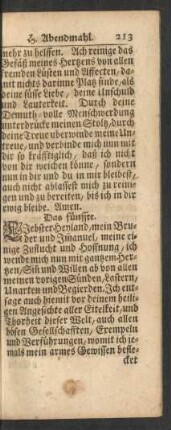 H. Abendmahl. 213
mehr zu helffen. Ach reinige das
Gefäß meines Hertzens von allen
fremden Lüsten und Affecten, da-
mit nichts darinne Platz finde, als
deine süsse Liebe, deine Unschuld
und Lauterkeit. Durch deine
Demuth-volle Menschwerdung
unterdrücke meinen Stoltz, durch
deine Treu überwinde meine Un-
treue, und verbinde mich nun mit
dir so kräfftiglich, daß ich nicht
von dir weichen könne, sondern
nun in dir und du in mir bleibest,
auch nicht ablassest mich zu reini-
gen und zu bereiten, biß ich in dir
ewig bleibe. Amen.
Das fünffte.
LIebster Heyland, mein Bru-
der und Immanuel, meine ei-
nige Zuflucht und Hoffnung, ich
wende mich nun mit gantzem Her-
tzen, Sinn und Willen ab von allen
meinen vorigen Sünden, Lastern,
Unarten und Begierden. Ich ent-
sage auch hiemit vor deinem heili-
gen Angesichte aller Eitelkeit, und
Thorheit dieser Welt, auch allen
bösen Gesellschafften, Exempeln
und Verführungen, womit ich je-
mals mein armes Gewissen befle-
cket